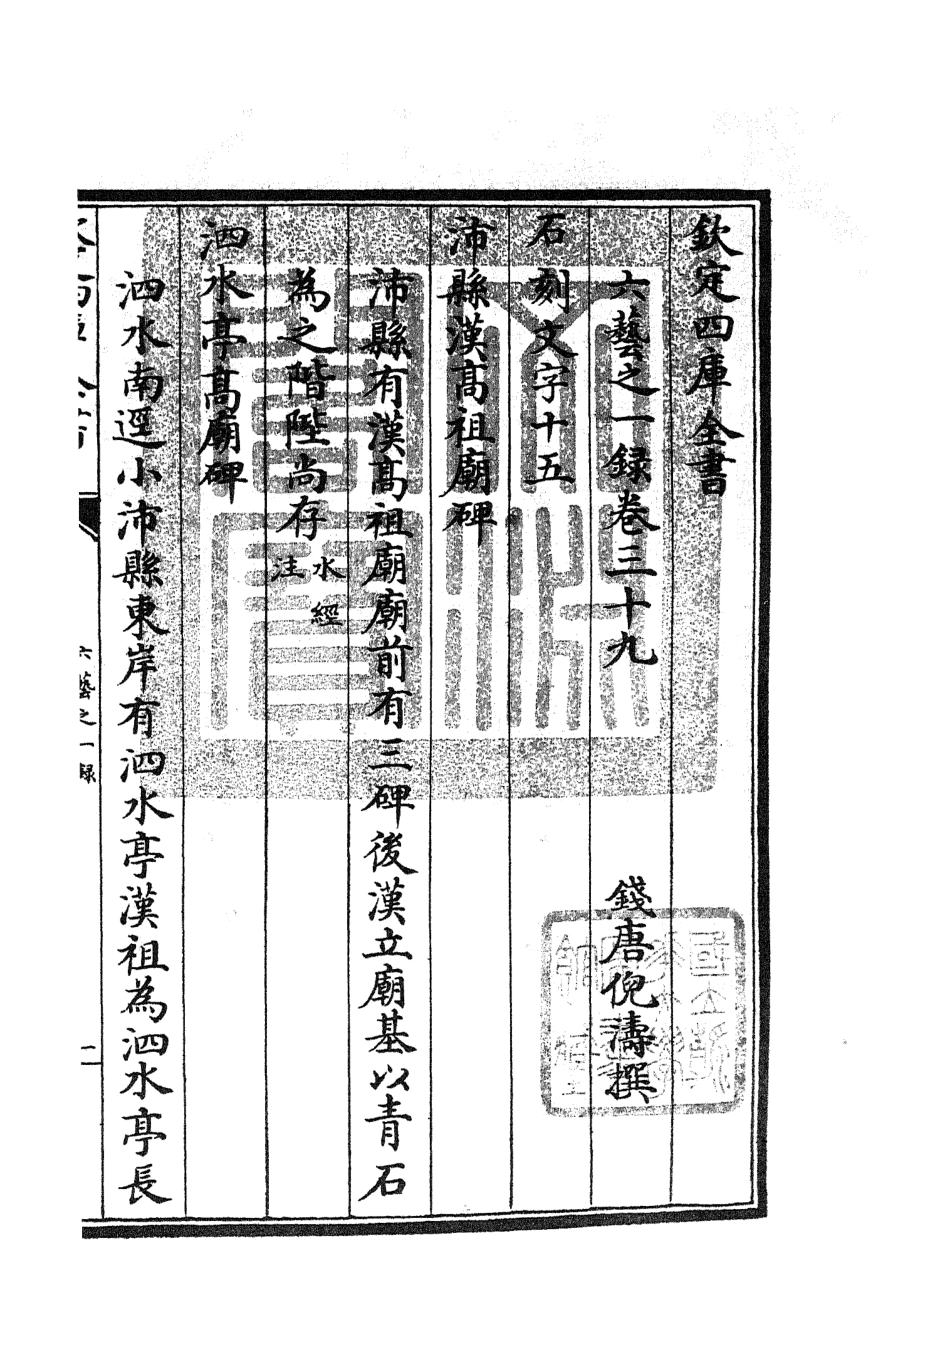 欽定四庫全書
六藝之一録卷三十九
錢唐倪濤撰
石刻文字十五
沛縣漢髙祖廟碑
沛縣有漢髙祖廟廟前有三碑後漢立廟基以青石
為之階陛尚存水經注
泗水亭髙廟碑
泗水南逕小沛縣東岸有泗水亭漢祖為泗水亭長
六藝之一録